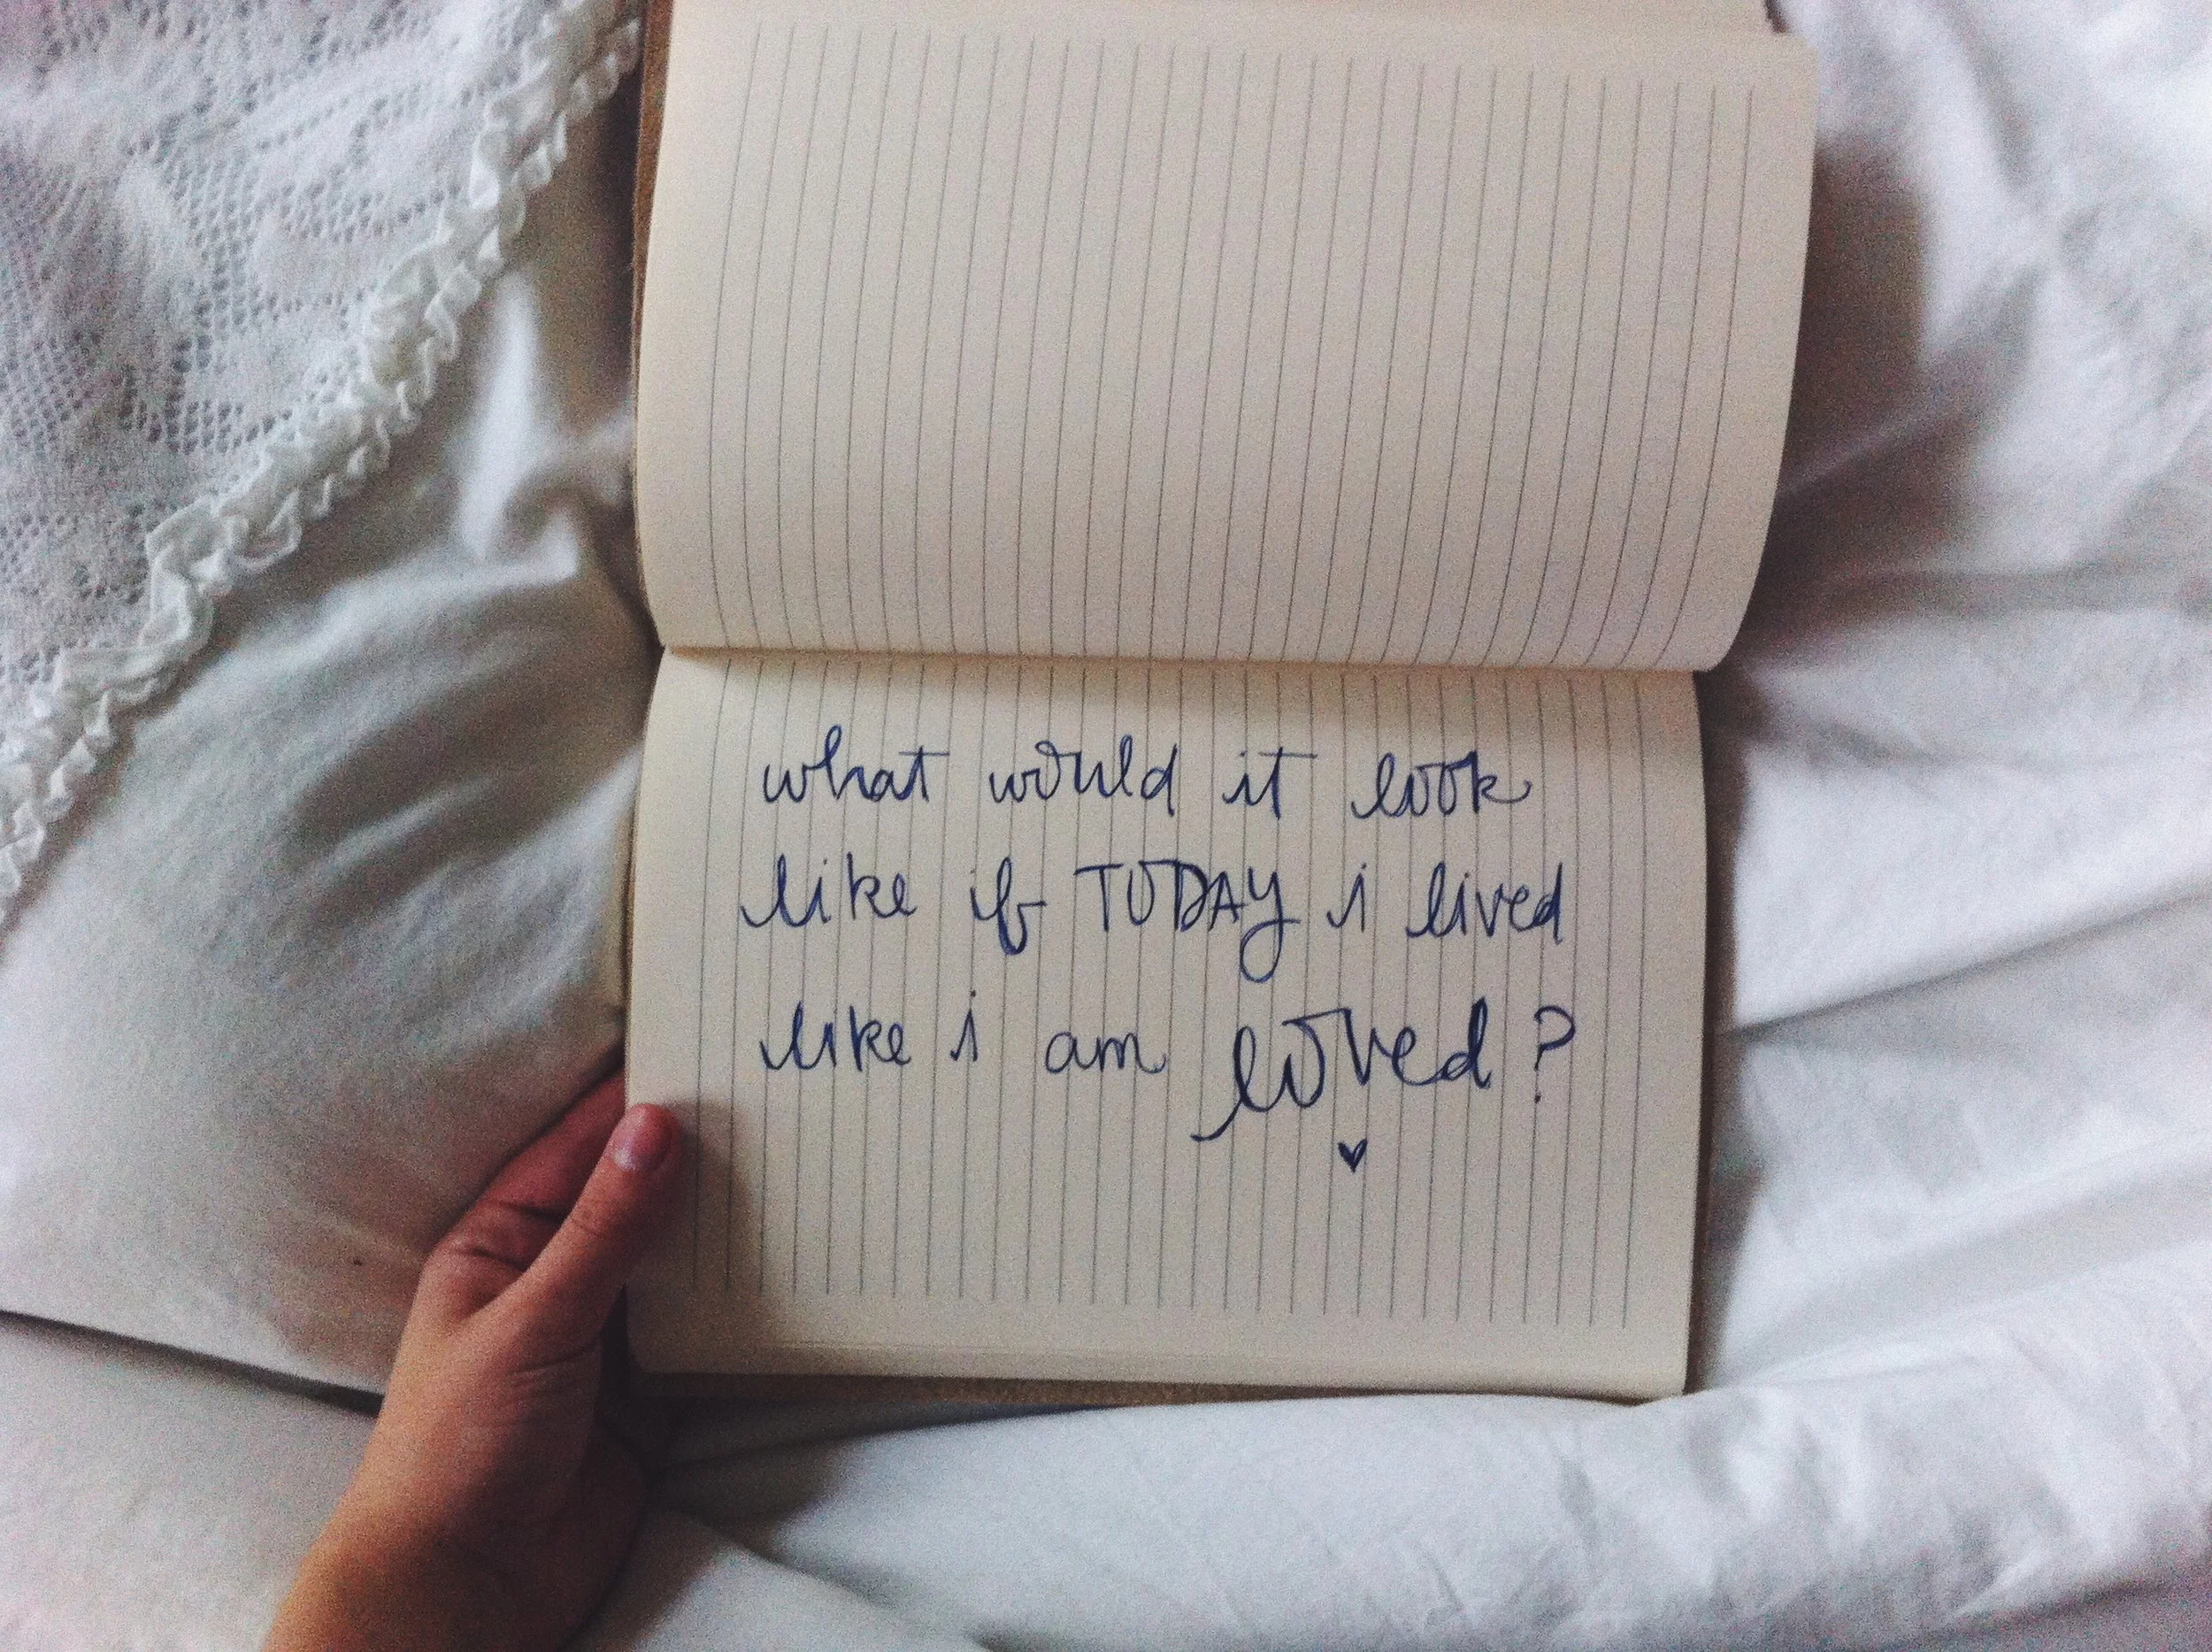 what would it look
like if TODAY i lived
like i am loved?